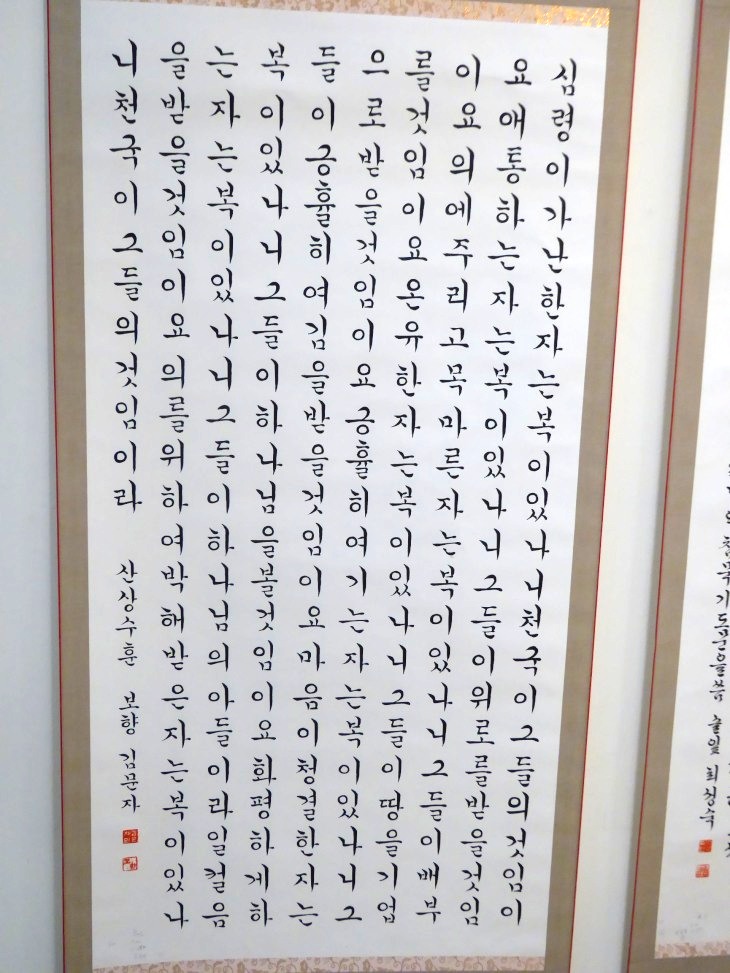 심령이가난한자는복이있나니천국이그들의것임이
요애통하는자는복이있나니그들이위로를받을것임
이요의에주리고목마른자는복이있나니그들이배부
를것임이요온유한자는복이있나니그들이땅을기업
으로받을것임이요긍휼히여기는자는복이있나니그
들이긍휼히여김을받을것임이요마음이청결한자는
복이있나니그들이하나님을볼것임이요화평하게하
는자는복이있나니그들이하나님의아들이라일컬음
을받을것임이요의를위하여박해받은자는복이있나
니천국이그들의것임이라 산상수훈 보향 김문자
기도문을씀